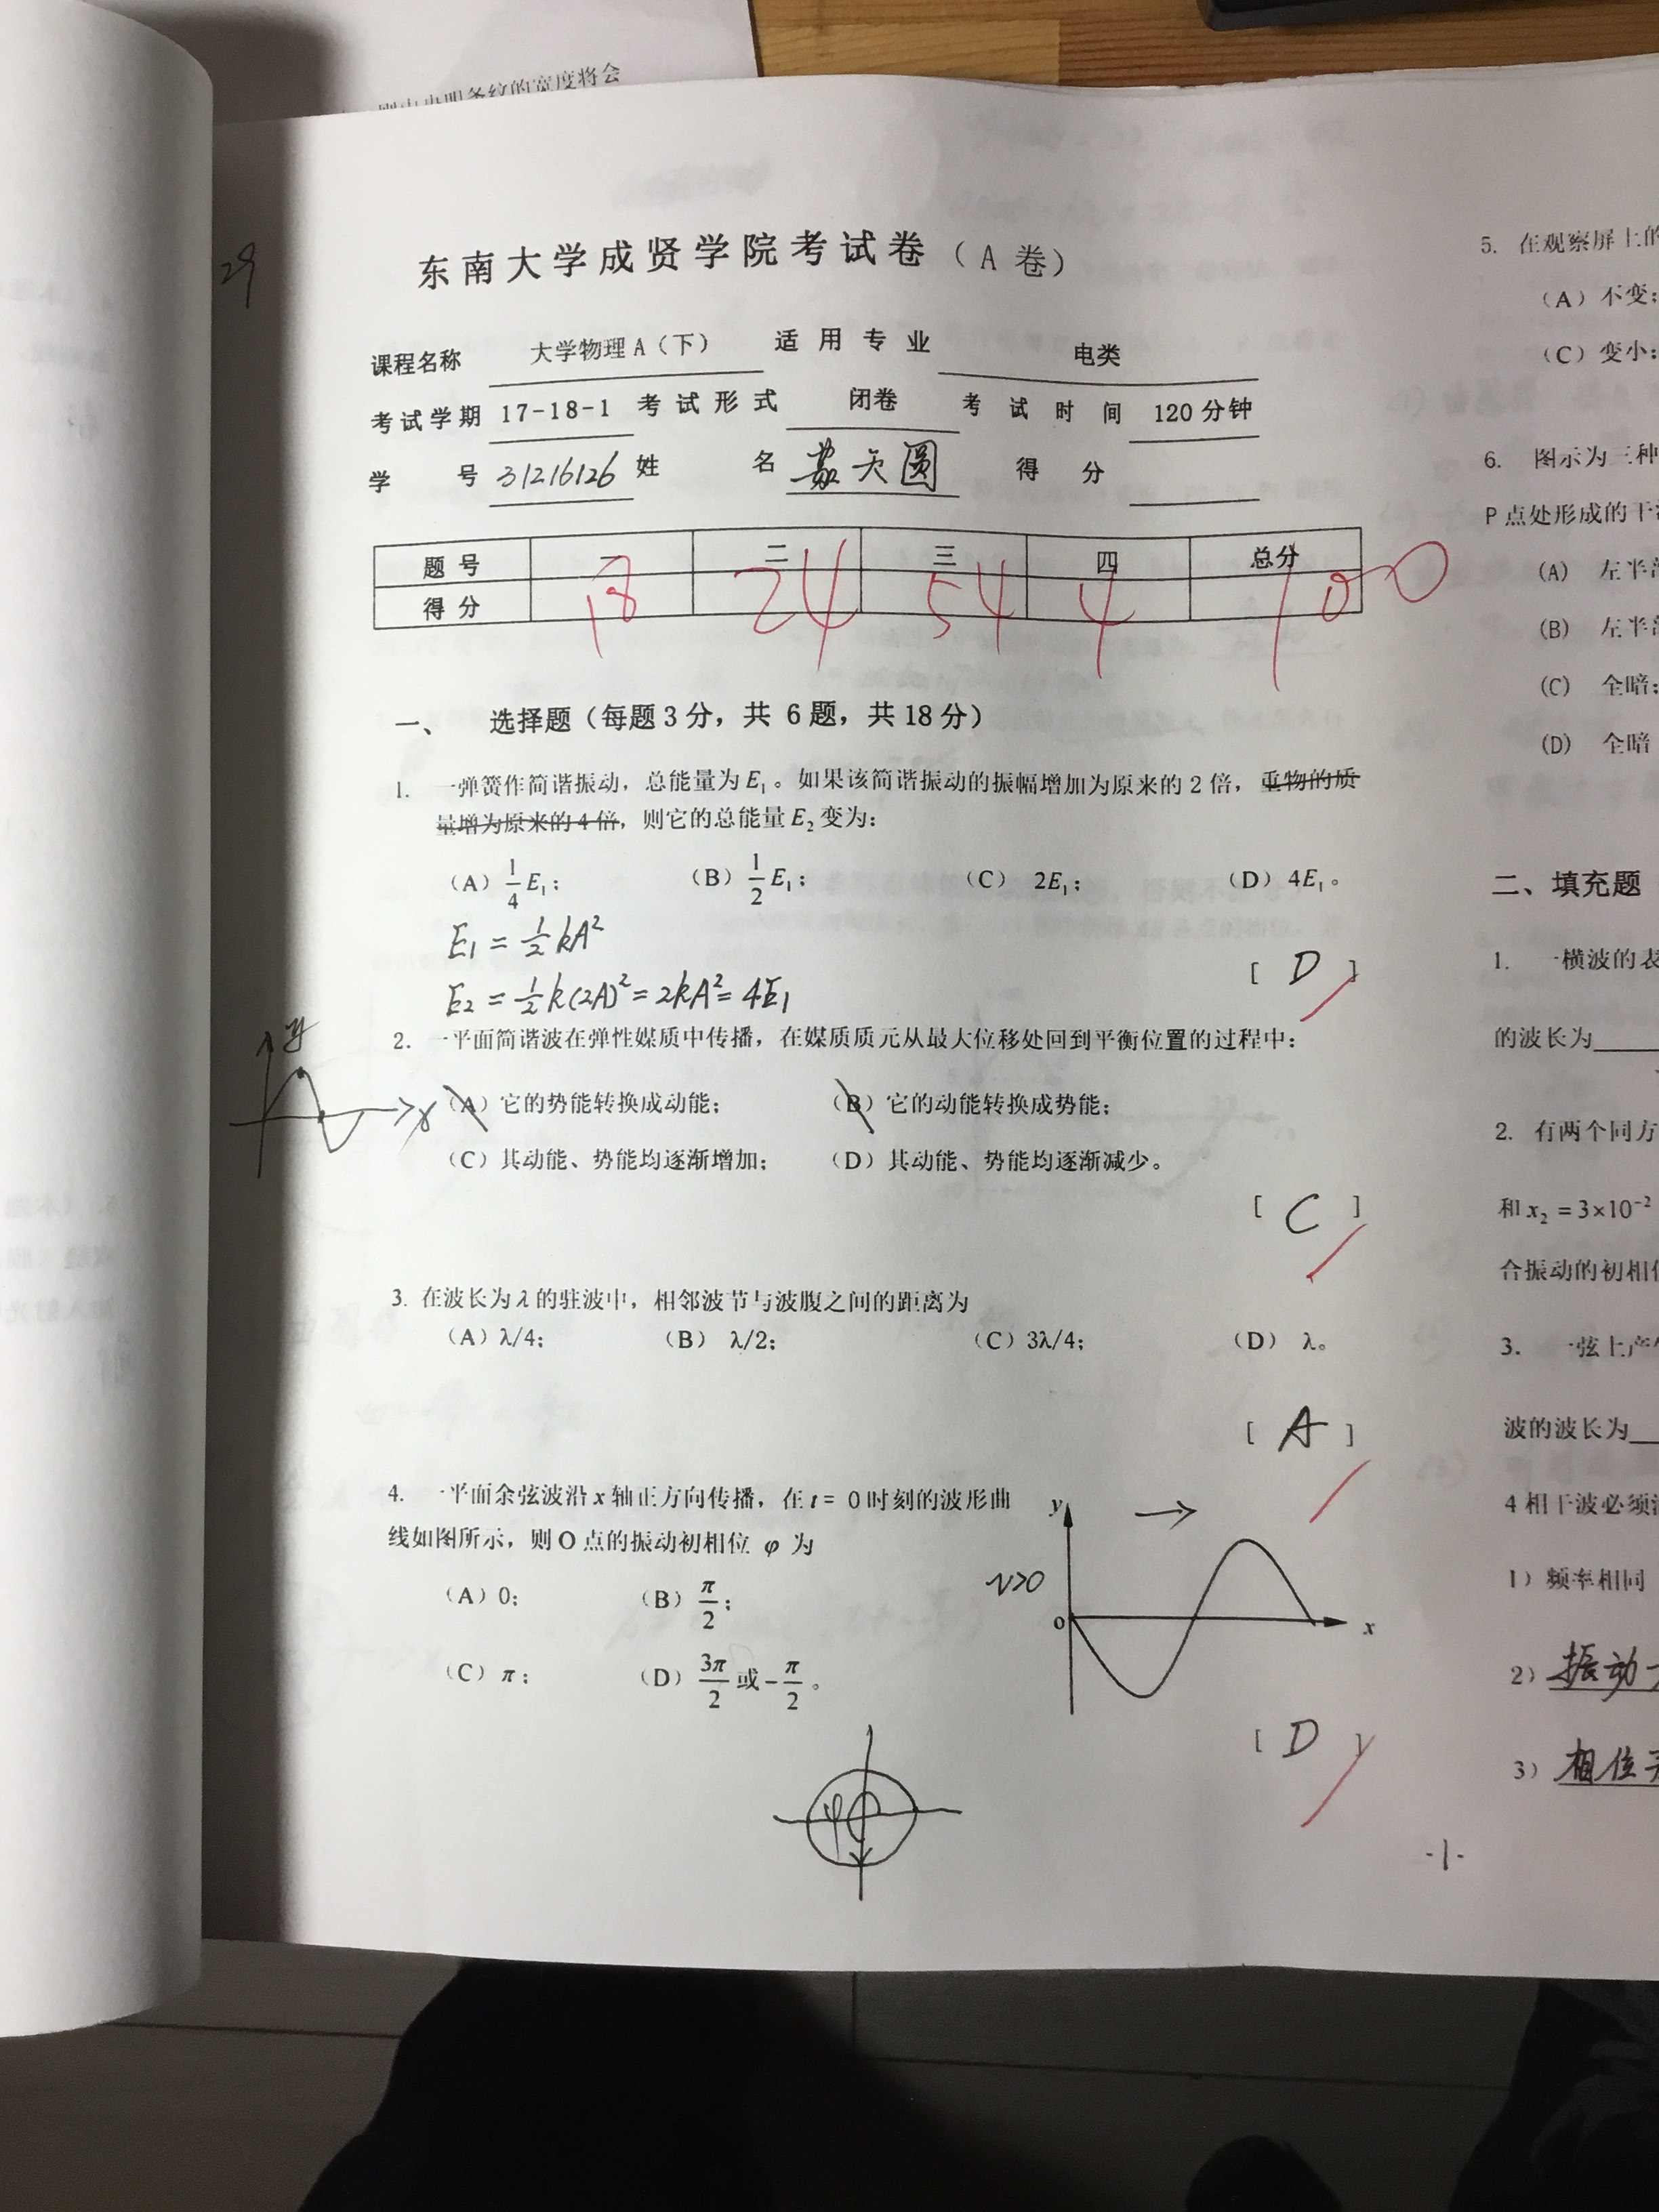 则中央明条纹的宽度将会
29
东南大学成贤学院考试卷（A 卷）
课程名称 大学物理 A（下） 适用专业 电类
考试学期 17-18-1 考试形式 闭卷 考试时间 120 分钟
学号 31216126 姓名 天圆 得分
题号 一 二 三 四 总分
得分 18 24 54 4 100
一、 选择题（每题 3 分，共 6 题，共 18 分）
1. 一弹簧作简谐振动，总能量为 E₁。如果该简谐振动的振幅增加为原来的 2 倍，重物的质
量增为原来的 4 倍，则它的总能量 E₂ 变为：
（A）1/4 E₁； （B）1/2 E₁； （C） 2E₁； （D）4E₁。
E₁ = ½kA²
[ D ]
E₂ = ½k(2A)² = 2kA² = 4E₁
2. 一平面简谐波在弹性媒质中传播，在媒质质元从最大位移处回到平衡位置的过程中：
y
x
（A）它的势能转换成动能； （B）它的动能转换成势能；
（C）其动能、势能均逐渐增加； （D）其动能、势能均逐渐减少。
[ C ]
3. 在波长为 λ 的驻波中，相邻波节与波腹之间的距离为
（A）λ/4； （B） λ/2； （C）3λ/4； （D） λ。
[ A ]
4. 一平面余弦波沿 x 轴正方向传播，在 t = 0 时刻的波形曲
线如图所示，则 O 点的振动初相位 φ 为
（A）0； （B）π/2；
（C）π； （D）3π/2 或 -π/2。
y
v>0
o
x
[ D ]
φ
5. 在观察屏上的
（A）不变；
（C）变小；
6. 图示为三种
P 点处形成的干
(A) 左半
(B) 左半
(C) 全暗；
(D) 全暗
二、填充题
1. 一横波的表
的波长为
2. 有两个同方
和 x₂ = 3×10⁻²
合振动的初相位
3. 一弦上产
波的波长为
4 相干波必须
1）频率相同
2）振动
3）相位
-1-